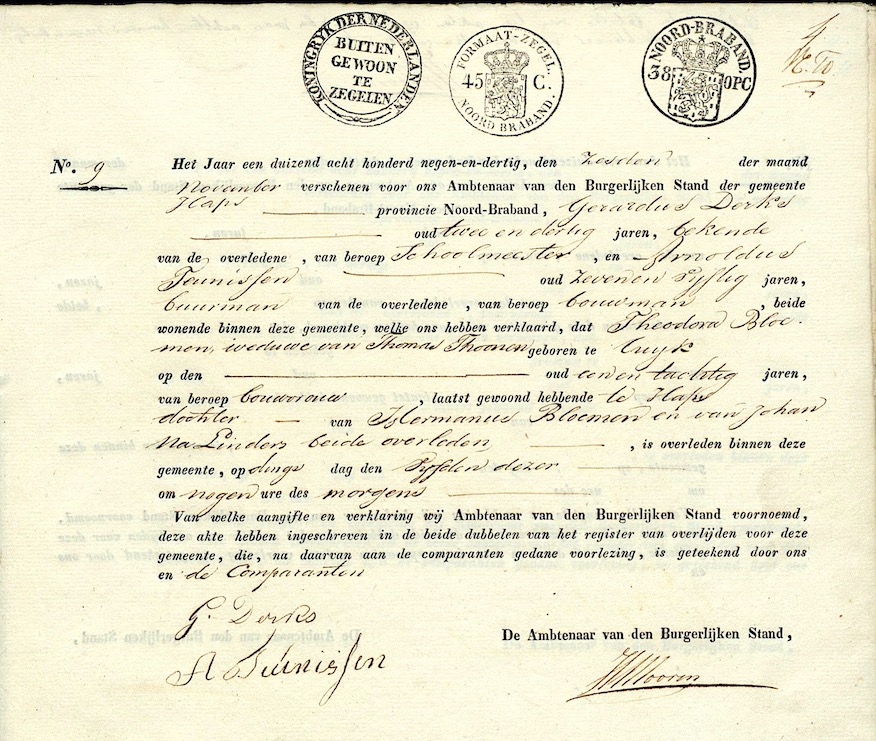 KONINGRYK DER NEDERLANDEN
BUITEN
GEWOON
TE
ZEGELEN
FORMAAT-ZEGEL.
45 C.
NOORD BRABAND.
NOORD-BRABAND
38 OPC
No. 9
Het Jaar een duizend acht honderd negen-en-dertig, den zesden der maand
November verschenen voor ons Ambtenaar van den Burgerlijken Stand der gemeente
Haps provincie Noord-Braband, Gerardus Derks
oud twee en dertig jaren, bekende
van de overledene, van beroep Schoolmeester, en Arnoldus
Teunissen oud zeven en Vyftig jaren,
buurman van de overledene, van beroep bouwman, beide
wonende binnen deze gemeente, welke ons hebben verklaard, dat Theodora Bloe-
men, weduwe van Thomas Thoonen geboren te Cuyk
op den oud een en tachtig jaren,
van beroep bouvrouw, laatst gewoond hebbende te Haps
dochter van Hermanus Bloemen en van Johan
na Linders beide overleden, is overleden binnen deze
gemeente, op dings dag den Vyfden dezer
om negen ure des morgens
Van welke aangifte en verklaring wij Ambtenaar van den Burgerlijken Stand voornoemd,
deze akte hebben ingeschreven in de beide dubbelen van het register van overlijden voor deze
gemeente, die, na daarvan aan de comparanten gedane voorlezing, is geteekend door ons
en de Comparanten
G. Derks
De Ambtenaar van den Burgerlijken Stand,
A Teunissen